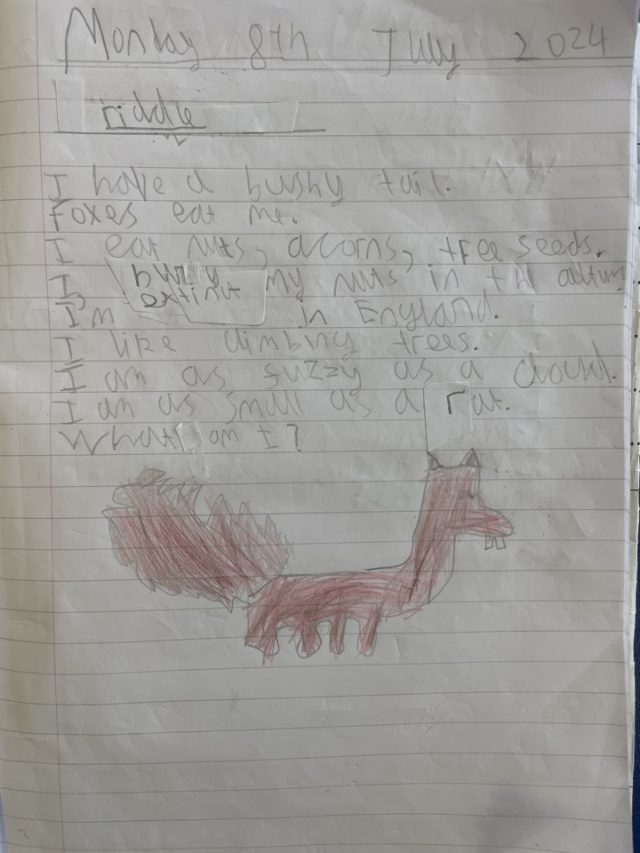 Monday 8th July 2024
riddle
I have a bushy tail.
Foxes eat me.
I eat nuts, acorns, tree seeds.
I burry my nuts in th
I'm extinct in England.
I like climbing trees.
I am as fuzzy as a cloud.
I am as small as a rat.
What am I?